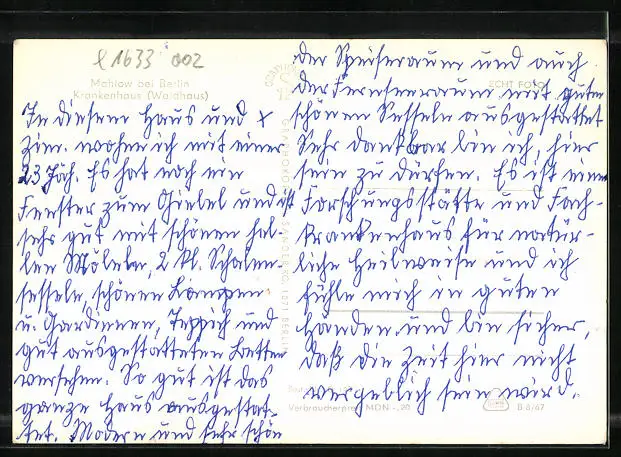 l 1633 002
Mahlow bei Berlin
Krankenhaus (Waldhaus)
In diesem Haus und x
Zim. wohne ich mit einer
23 Jäh. Es hat noch ein
Fenster zum Giebel und ist
sehr gut mit schönen hel-
len Möbeln, 2 kl. Schalen-
sesseln, schönen Lampen
u. Gardinen, Teppich und
gut ausgestatteten Betten
versehen. So gut ist das
ganze Haus ausgestat-
tet. Modern und sehr schön
der Speiseraum und auch
der Fernseeraum mit guten
schönen Sesseln ausgestattet
Sehr dankbar bin ich, hier
sein zu dürfen. Es ist eine
Forschungsstätte und Fach-
krankenhaus für natür-
liche Heilweise und ich
fühle mich in guten
Händen und bin sicher,
daß die Zeit hier nicht
vergeblich sein wird.
ECHT FOTO
Verbraucherpreis MDN -,20
B 8/67